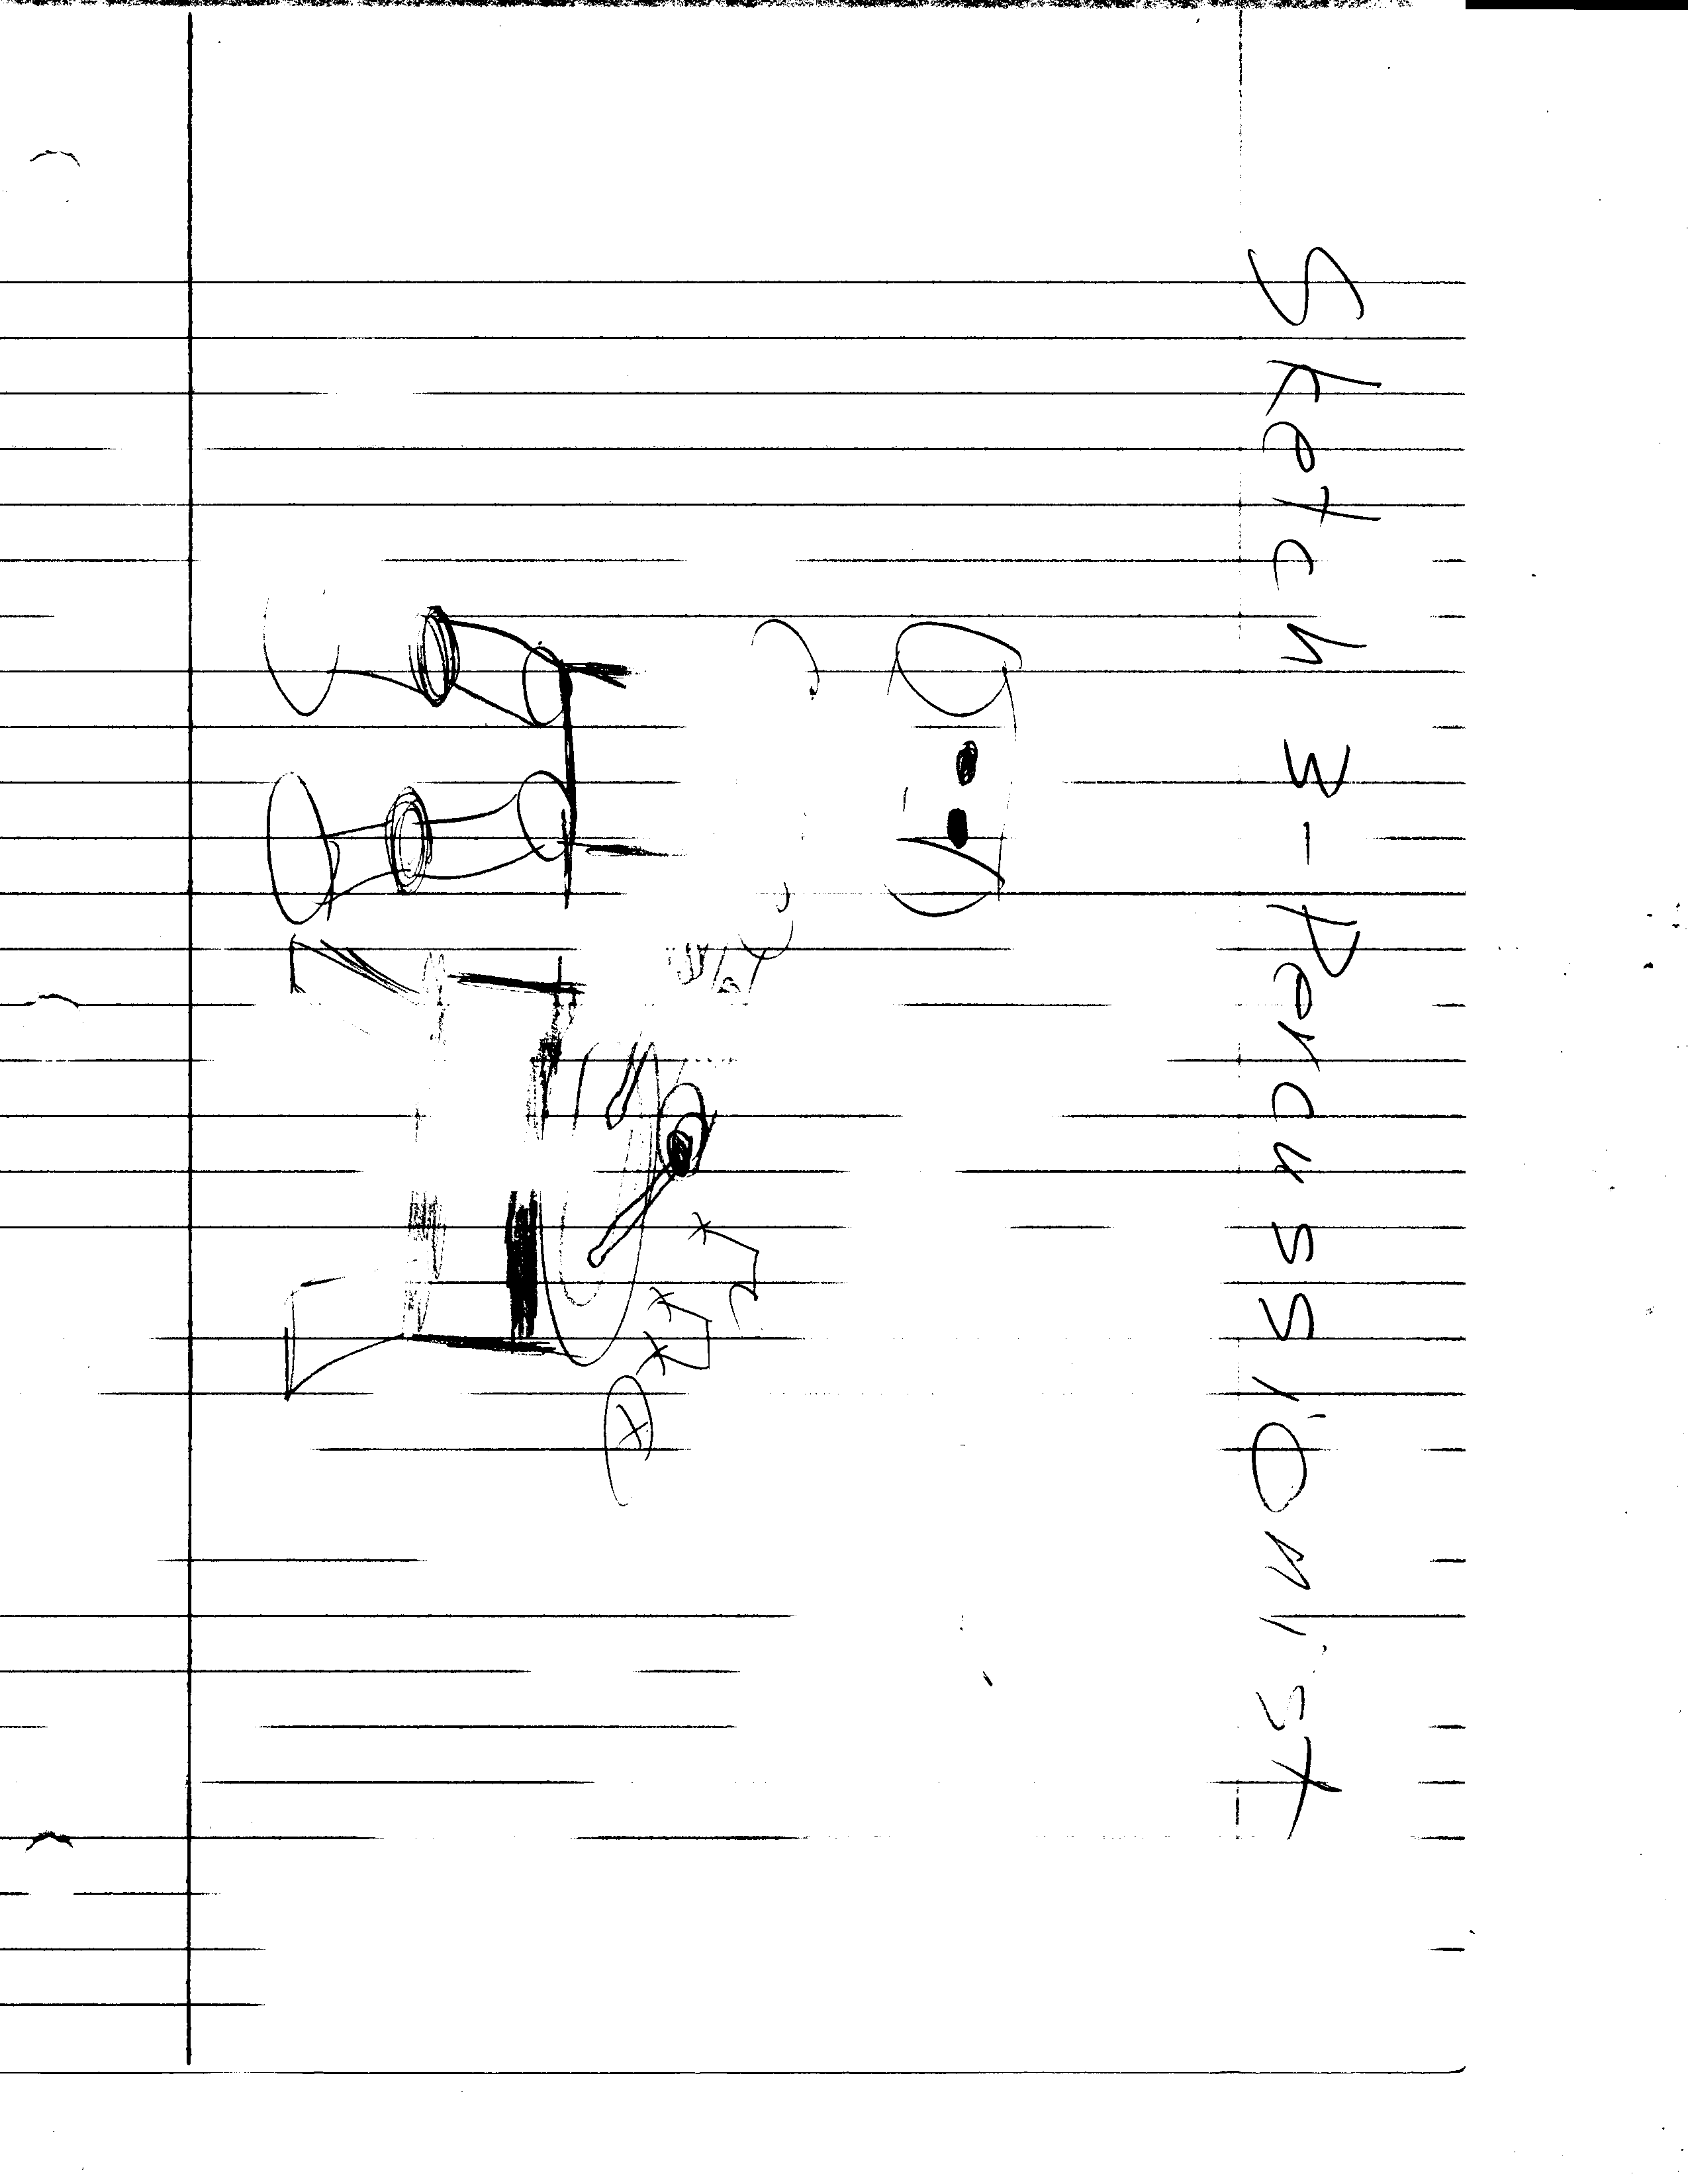 Sketch 3 - Percussionist